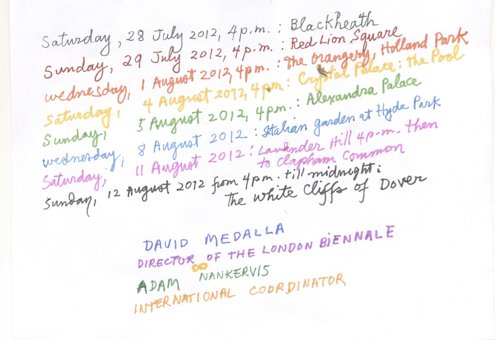 Saturday, 28 July 2012, 4 p.m. : Blackheath
Sunday, 29 July 2012, 4 p.m. : Red Lion Square
Wednesday, 1 August 2012, 4 p.m. : The Orangery, Holland Park
Saturday, 4 August 2012, 4 pm : Crystal Palace : The Pool
Sunday, 5 August 2012, 4 pm : Alexandra Palace
Wednesday, 8 August 2012 : Italian garden at Hyde Park
Saturday, 11 August 2012 : Lavender Hill 4 p.m. then
to Clapham Common
Sunday, 12 August 2012 from 4 pm. till midnight :
The White Cliffs of Dover
DAVID MEDALLA
DIRECTOR OF THE LONDON BIENNALE
ADAM NANKERVIS
INTERNATIONAL COORDINATOR